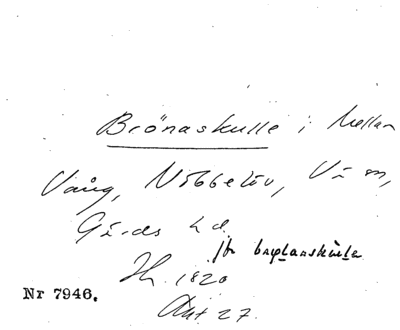 Brönaskulle i Mellan
Vång, Nöbbelöv, V
Gärds hd.
jfr
Jh. 1820
Akt 27.
Nr 7946.